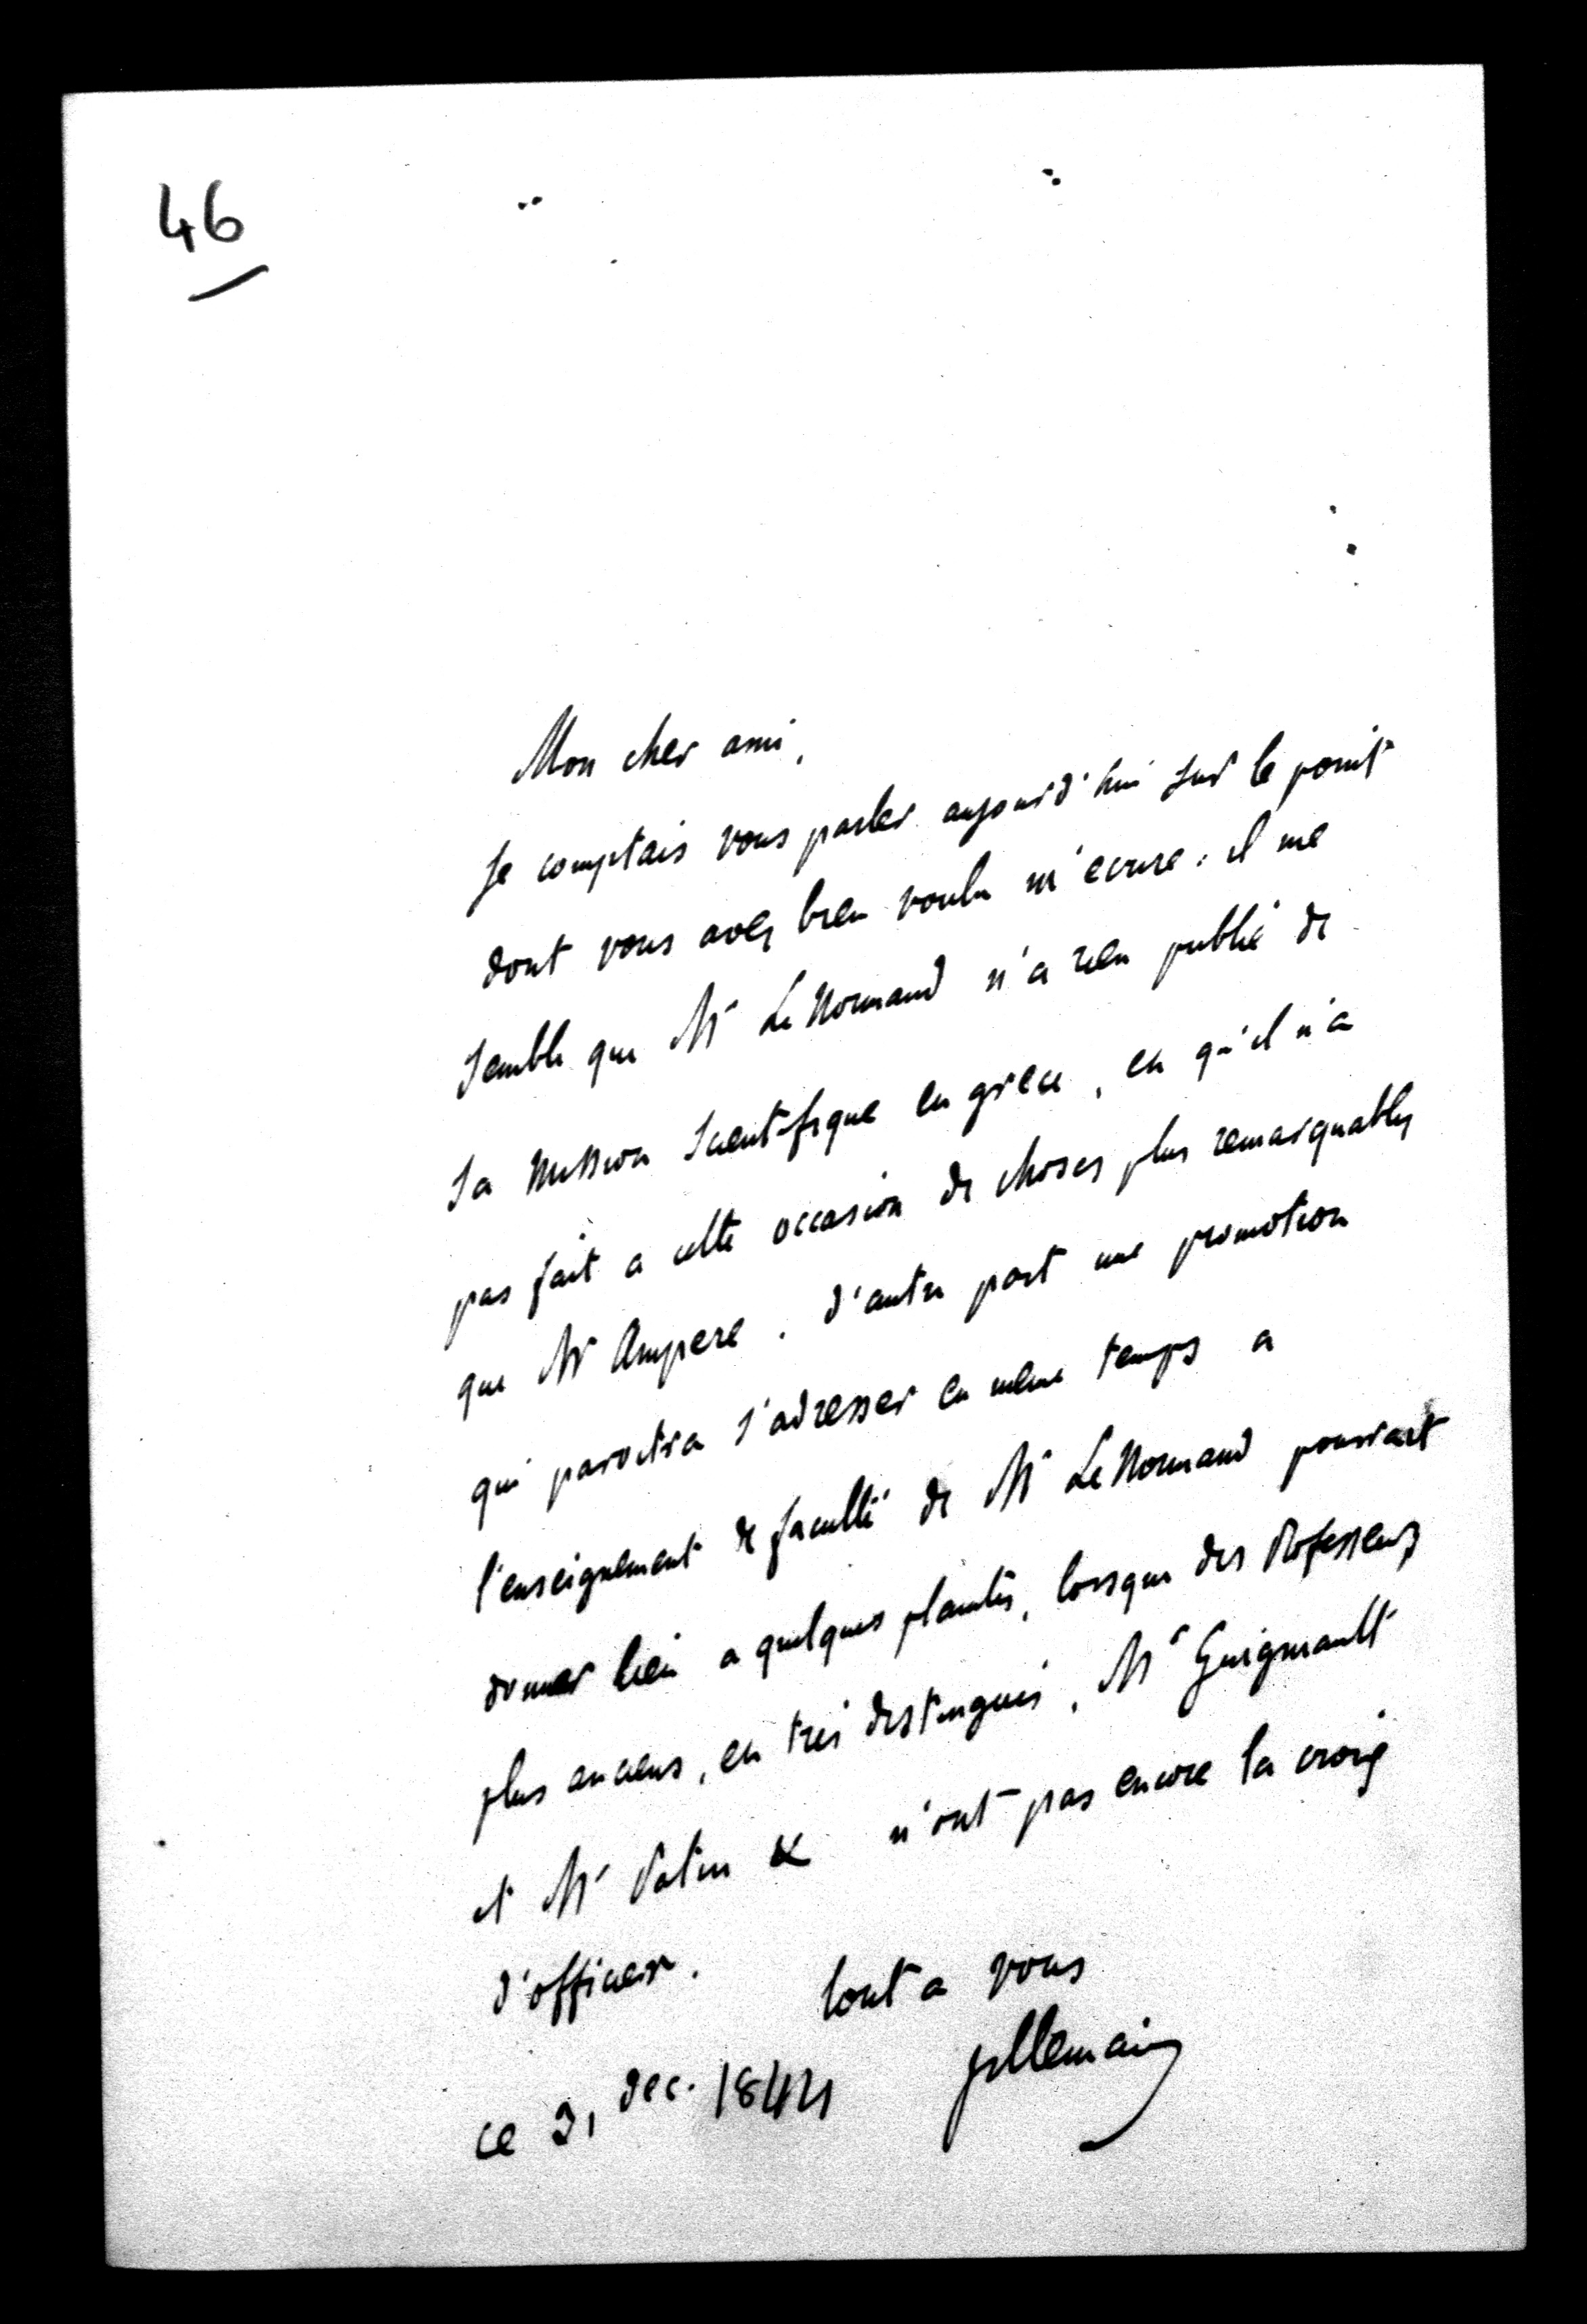 46
Mon cher ami,
je comptais vous parler aujourd'hui sur le point
dont vous avez bien voulu m'ecrire. il me
semble que Mr Le Normand n'a rien publié de
sa mission scientifique en grece, en qu'il n'a
pas fait a cette occasion de choses plus remarquables
que Mr Ampere. d'autre part une promotion
qui paroitra s'adresser en meme temps a
l'enseignement de faculté de Mr Le Normand pourrait
donner lieu a quelques plaintes, lorsque des Professeurs
plus anciens, en très distingués, Mr Guigniault
et Mr Patin & n'ont pas encore la croix
d'officier.
tout a vous
Villemain
ce 31 dec. 1844